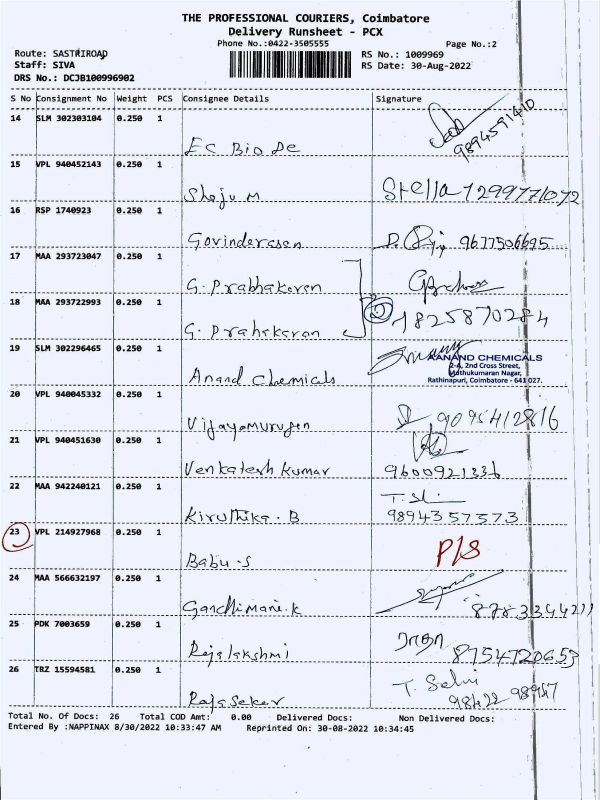 THE PROFESSIONAL COURIERS, Coimbatore
Delivery Runsheet - PCX
Phone No.:0422-3505555
Page No.:2
Route: SASTRIROAD
RS No.: 1009969
Staff: SIVA
RS Date: 30-Aug-2022
DRS No.: DCJB100996902
S No Consignment No Weight PCS Consignee Details Signature
14 SLM 302303104 0.250 1
EC Bio De 9894591410
15 VPL 940452143 0.250 1
Shoju M Stella 7299771072
16 RSP 1740923 0.250 1
Govinderasen 9677506695
17 MAA 293723047 0.250 1
G. Prabhakeren
18 MAA 293722993 0.250 1
G. Prahakaran 2 7825870284
19 SLM 302296465 0.250 1
Anand Chemicals
AANAND CHEMICALS
2-A, 2nd Cross Street,
Muthukumaran Nagar,
Rathinapuri, Coimbatore - 641 027.
20 VPL 940045332 0.250 1
Vijayamurugen 9095412816
21 VPL 940451630 0.250 1
Venkatesh Kumar 9600921336
22 MAA 942240121 0.250 1
Kiruthika. B 9894357573
23 VPL 214927968 0.250 1
Babu. S P/S
24 MAA 566632197 0.250 1
Gandhimani. K 8783344211
25 PDK 7003659 0.250 1
Rajalakshmi ராதா 8754720653
26 TRZ 15594581 0.250 1
Rajasekar T. Selvi 98422 98947
Total No. Of Docs: 26 Total COD Amt: 0.00 Delivered Docs: Non Delivered Docs:
Entered By :NAPPINAX 8/30/2022 10:33:47 AM Reprinted On: 30-08-2022 10:34:45